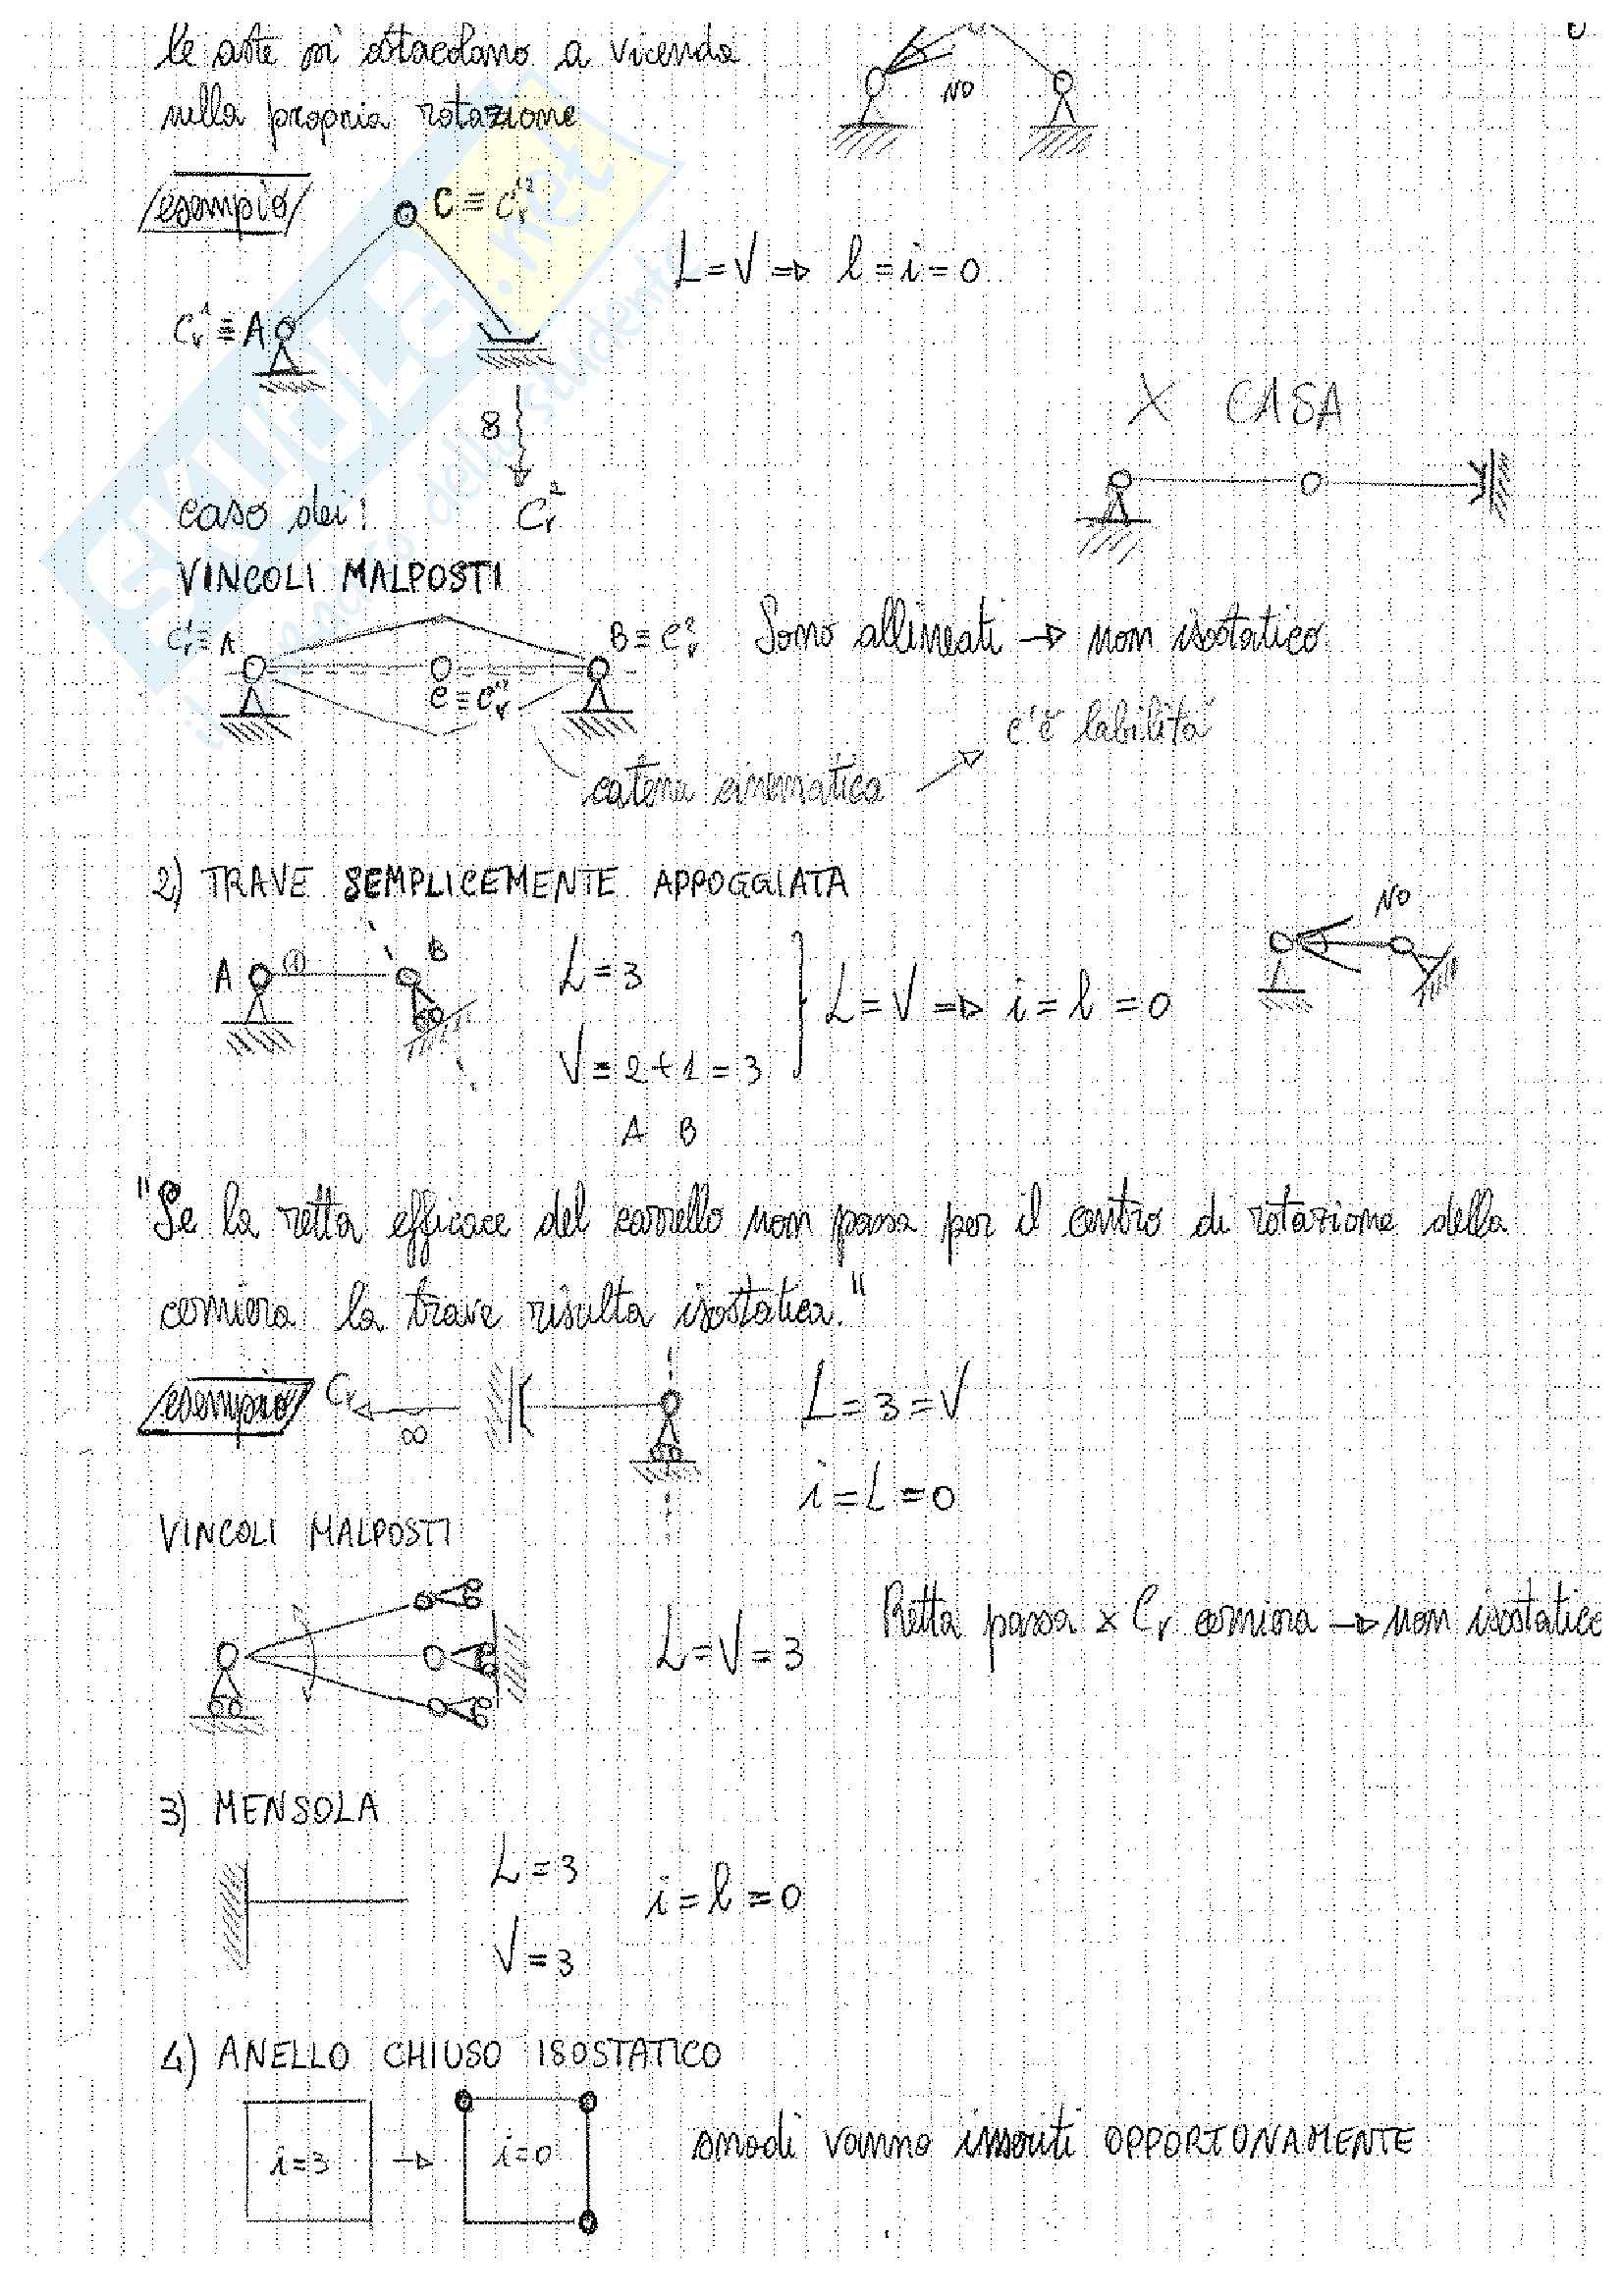 le aste si ostacolano a vicenda
nella propria rotazione
NO
esempio
C ≡ Cr¹²
L = V ⇒ l = i = 0
Cr¹ ≡ A
8
Cr²
X CASA
caso dei:
VINCOLI MALPOSTI
Cr¹ ≡ A
B ≡ Cr²
C ≡ Cr¹²
Sono allineati → non isostatico
catena cinematica
c'è labilità
2) TRAVE SEMPLICEMENTE APPOGGIATA
A ① B
L = 3
V = 2 + 1 = 3
A B
L = V ⇒ i = l = 0
NO
"Se la retta efficace del carrello non passa per il centro di rotazione della
cerniera la trave risulta isostatica."
esempio
Cr
∞
L = 3 = V
i = L = 0
VINCOLI MALPOSTI
L = V = 3
Retta passa x Cr cerniera → non isostatico
3) MENSOLA
L = 3
V = 3
i = l = 0
4) ANELLO CHIUSO ISOSTATICO
i = 3 → i = 0
snodi vanno inseriti OPPORTUNAMENTE
SKUOLA.net